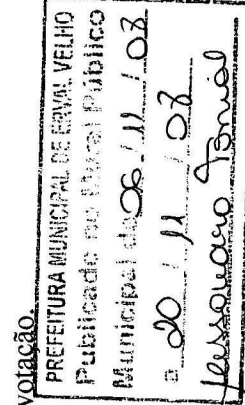 votação.
PREFEITURA MUNICIPAL DE ERVAL VELHO
Publicado no Mural Público
Municipal de 06 / 11 / 08
a 20 / 11 / 08